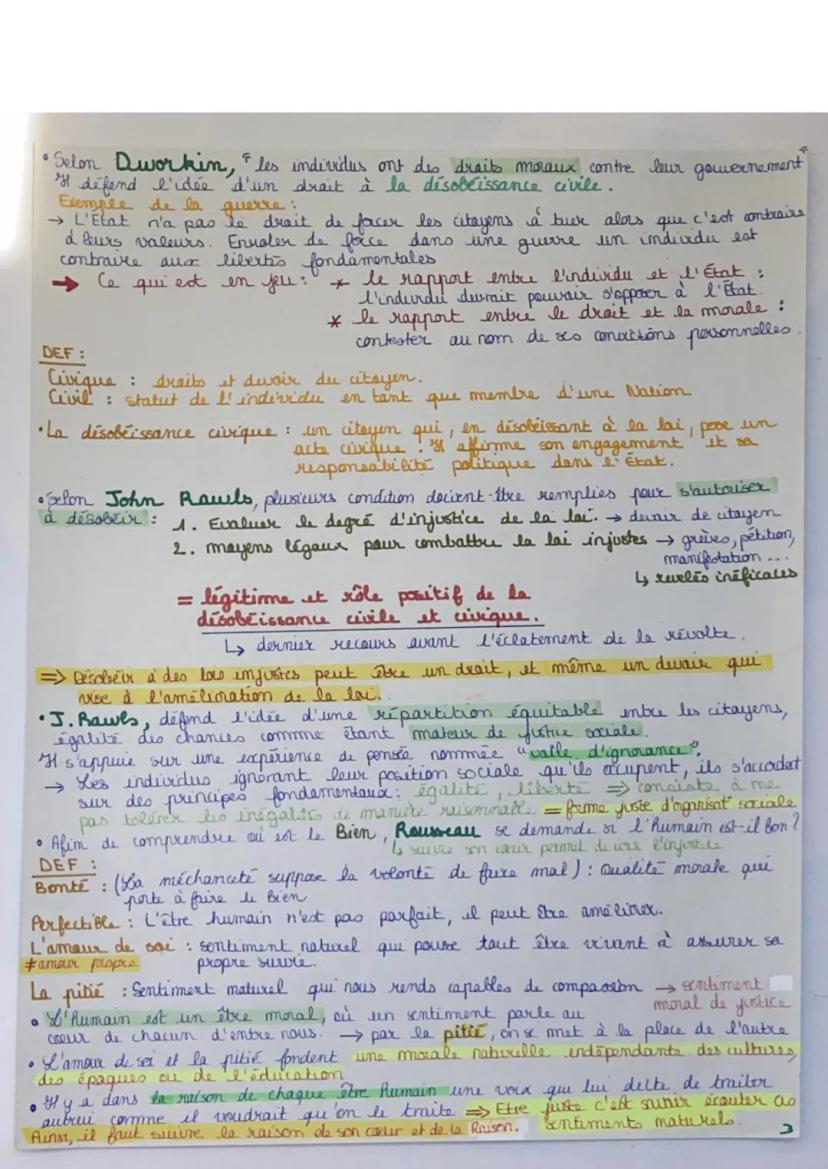 • Selon Dworkin, " les individus ont des droits moraux contre leur gouvernement "
Il défend l'idée d'un droit à la désobéissance civile.
Exemple de la guerre :
→ L'État n'a pas le droit de forcer les citoyens à tuer alors que c'est contraire
à leurs valeurs. Enroler de force dans une guerre un individu est
contraire aux libertés fondamentales
→ Ce qui est en jeu : * le rapport entre l'individu et l'État :
l'individu devrait pouvoir s'opposer à l'État.
* le rapport entre le droit et la morale :
contester au nom de ses convictions personnelles.
DEF :
Civique : droits et devoir du citoyen.
Civil : statut de l'individu en tant que membre d'une Nation
• La désobéissance civique : un citoyen qui, en désobéissant à la loi, pose un
acte civique. Il affirme son engagement et sa
responsabilité politique dans l'État.
• Selon John Rawls, plusieurs condition doivent-être remplies pour s'autoriser
à désobéir : 1. Evaluer le degré d'injustice de la loi. → devoir de citoyen
2. moyens légaux pour combattre la loi injustes → grèves, pétition,
manifestation ...
↳ revelés inéficales
= légitime et rôle positif de la
désobéissance civile et civique.
↳ dernier recours avant l'éclatement de la révolte.
⇒ Désobéir à des lois injustes peut être un droit, et même un devoir qui
vise à l'amélioration de la loi.
• J. Rawls, défend l'idée d'une répartition équitable entre les citoyens,
égalité des chances comme étant moteur de justice sociale.
Il s'appuie sur une expérience de pensée nommée "voile d'ignorance".
→ Les individus ignorant leur position sociale qu'ils occupent, ils s'accordent
sur des principes fondamentaux : égalité, liberté ⇒ consiste à ne
pas tolérer les inégalités de manière raisonnable = forme juste d'organisat° sociale
• Afin de comprendre où est le Bien, Rousseau se demande si l'humain est-il bon ?
↳ suivre son cœur permet de voir l'injustice
DEF :
Bonté : (La méchanceté suppose la volonté de faire mal) : Qualité morale qui
porte à faire le Bien
Perfectible : L'être humain n'est pas parfait, il peut être améliorer.
L'amour de soi : sentiment naturel qui pousse tout être vivant à assurer sa
≠ amour propre propre survie.
La pitié : Sentiment naturel qui nous rends capables de compassion → sentiment
moral de justice
• L'humain est un être moral, où un sentiment parle au
cœur de chacun d'entre nous. → par la pitié, on se met à la place de l'autre
• L'amour de soi et la pitié fondent une morale naturelle indépendante des cultures,
des époques ou de l'éducation
• Il y a dans la raison de chaque être humain une voix qui lui dicte de traiter
autrui comme il voudrait qu'on le traite ⇒ Etre juste c'est savoir écouter ces
Ainsi, il faut suivre la raison de son cœur et de la Raison. sentiments naturels.
3